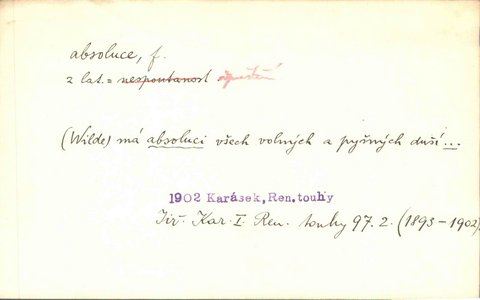 absoluce, f.
z lat. = nespoutanost
(Wilde) má absoluci všech volných a pyšných duší...
1902 Karásek, Ren. touhy
Jiř. Kar. I. Ren. touhy 97. 2. (1893-1902).